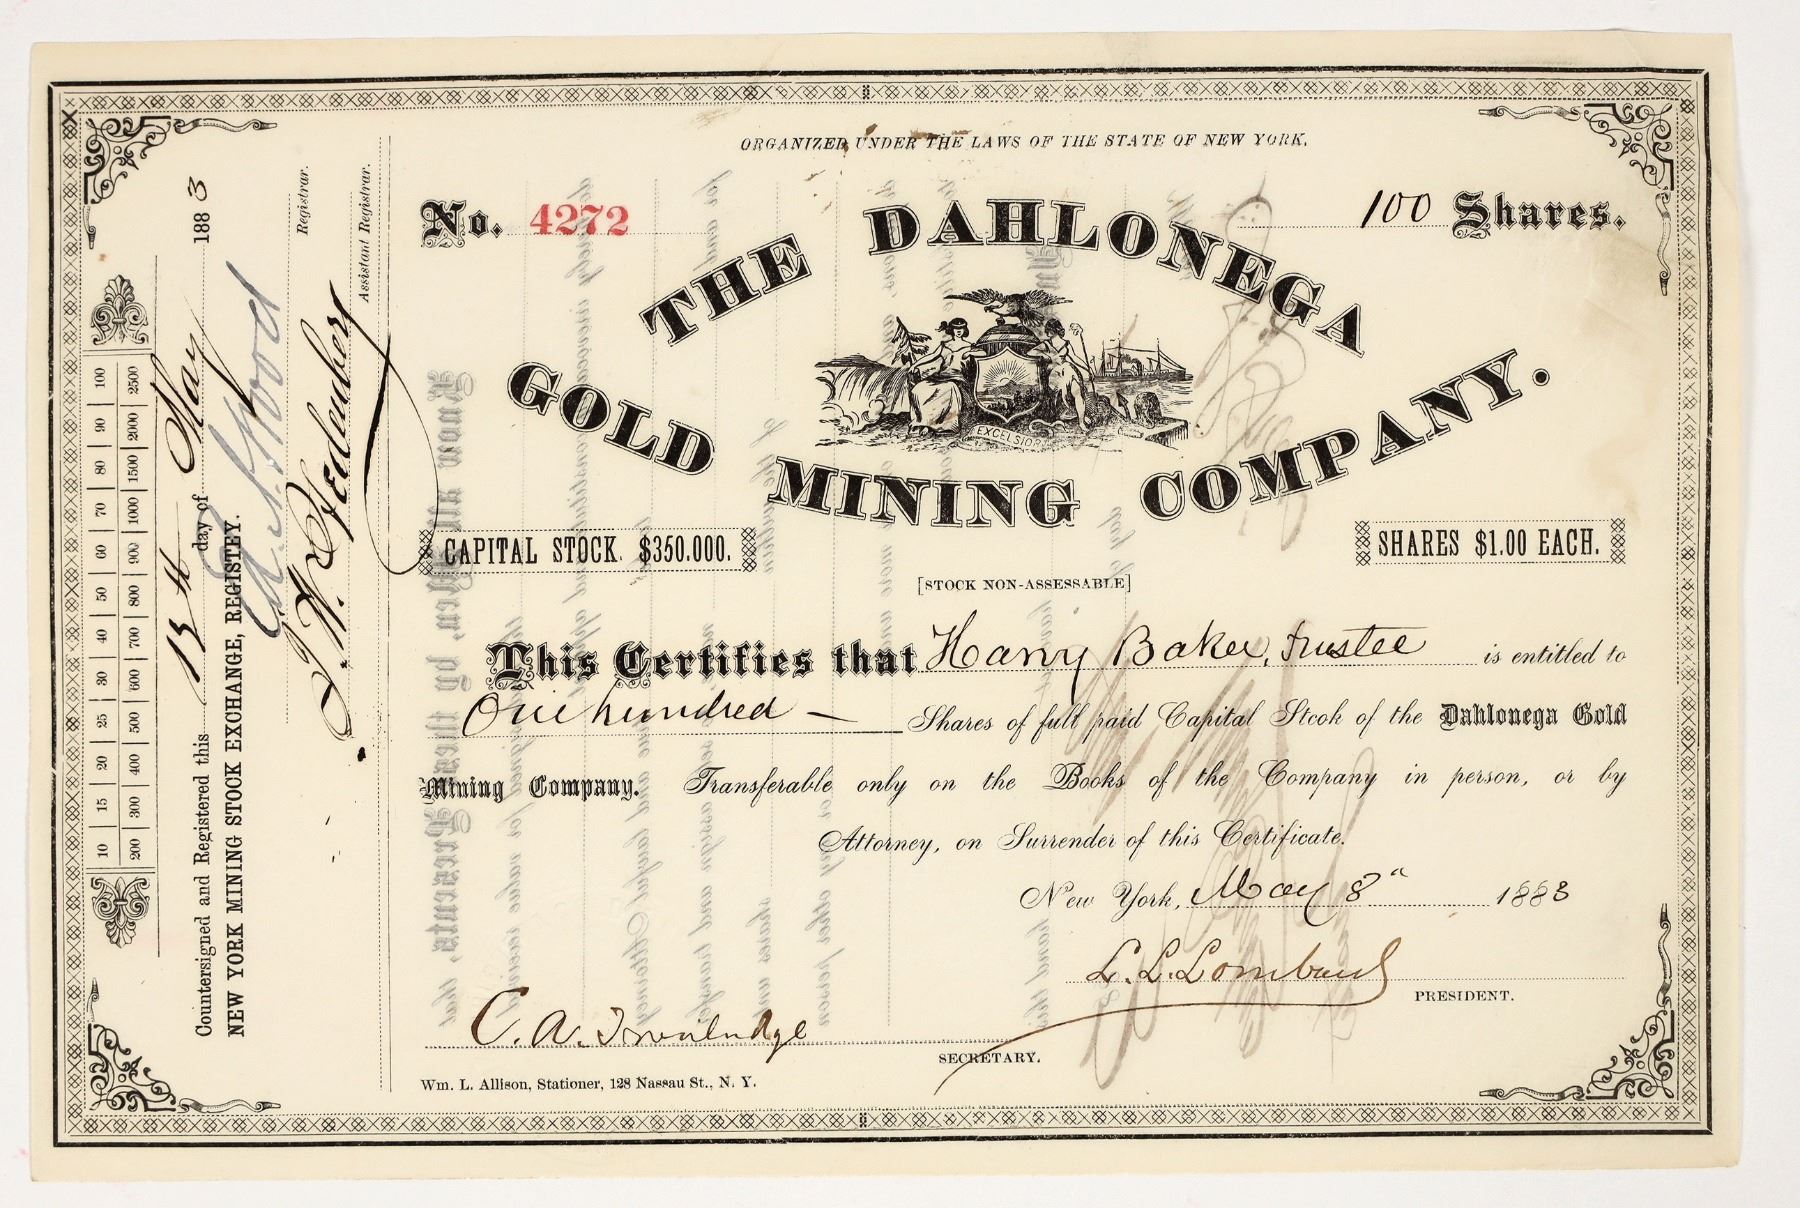 ORGANIZED UNDER THE LAWS OF THE STATE OF NEW YORK.
No. 4272
100 Shares.
THE DAHLONEGA
GOLD MINING COMPANY.
EXCELSIOR
CAPITAL STOCK. $350.000.
SHARES $1.00 EACH.
[STOCK NON-ASSESSABLE]
This Certifies that Harry Baker, trustee is entitled to
One hundred — Shares of full paid Capital Stcok of the Dahlonega Gold
Mining Company. Transferable only on the Books of the Company in person, or by
Attorney, on Surrender of this Certificate.
New York, May 8" 1883
L. L. Lombard
PRESIDENT.
C. A.
SECRETARY.
Wm. L. Allison, Stationer, 128 Nassau St., N. Y.
10 15 20 25 30 40 50 60 70 80 90 100
200 300 400 500 600 700 800 900 1000 1500 2000 2500
Countersigned and Registered this day of May 1883
NEW YORK MINING STOCK EXCHANGE, REGISTEY.
Wood
Registrar.
Assistant Registrar.